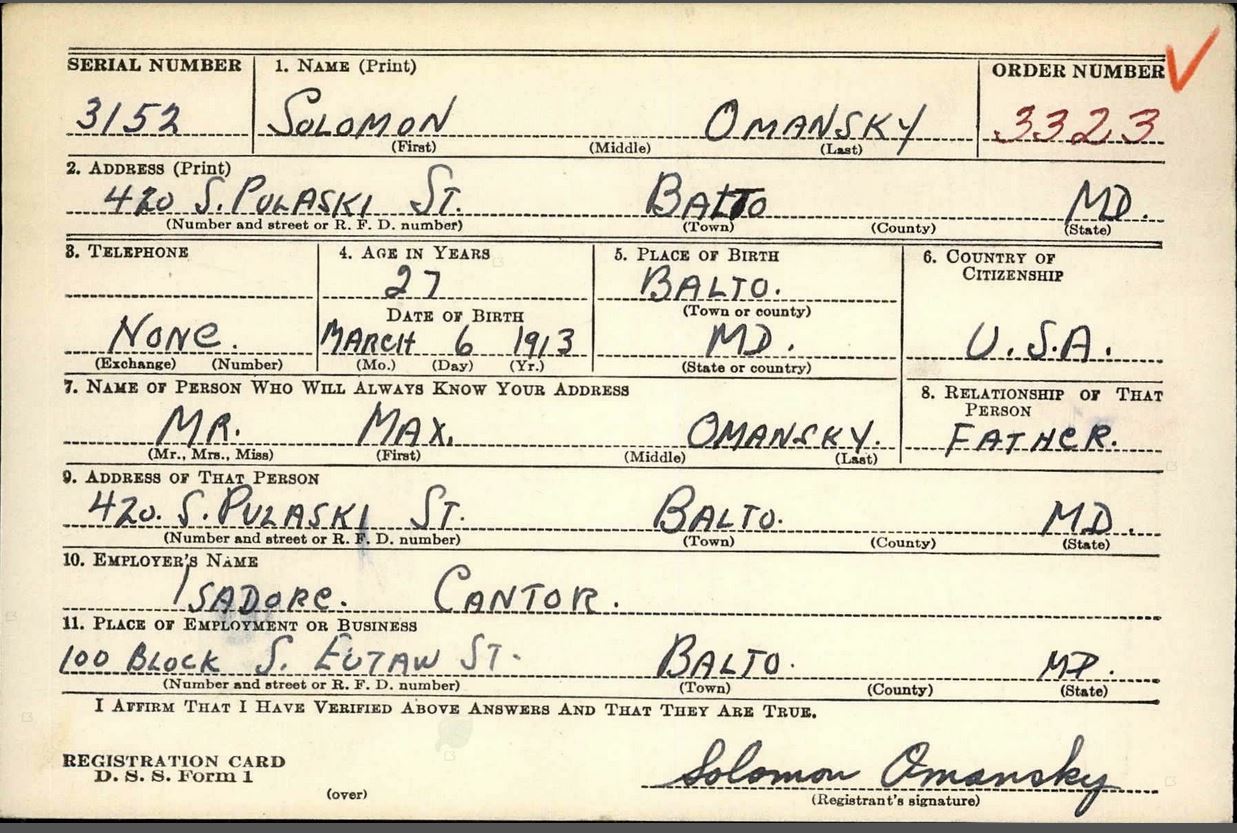 SERIAL NUMBER 1. NAME (Print) ORDER NUMBER
3152 SOLOMON OMANSKY 3323
(First) (Middle) (Last)
2. ADDRESS (Print)
420 S. PULASKI ST. BALTO MD.
(Number and street or R. F. D. number) (Town) (County) (State)
3. TELEPHONE 4. AGE IN YEARS 5. PLACE OF BIRTH 6. COUNTRY OF CITIZENSHIP
27 BALTO.
DATE OF BIRTH (Town or county)
NONE. MARCH 6 1913 MD. U.S.A.
(Exchange) (Number) (Mo.) (Day) (Yr.) (State or country)
7. NAME OF PERSON WHO WILL ALWAYS KNOW YOUR ADDRESS 8. RELATIONSHIP OF THAT PERSON
MR. MAX. OMANSKY. FATHER.
(Mr., Mrs., Miss) (First) (Middle) (Last)
9. ADDRESS OF THAT PERSON
420. S. PULASKI ST. BALTO. MD.
(Number and street or R. F. D. number) (Town) (County) (State)
10. EMPLOYER'S NAME
ISADORE. CANTOR.
11. PLACE OF EMPLOYMENT OR BUSINESS
100 BLOCK S. EUTAW ST. BALTO. MD.
(Number and street or R. F. D. number) (Town) (County) (State)
I AFFIRM THAT I HAVE VERIFIED ABOVE ANSWERS AND THAT THEY ARE TRUE.
REGISTRATION CARD
D. S. S. Form 1 Solomon Omansky
(over) (Registrant's signature)